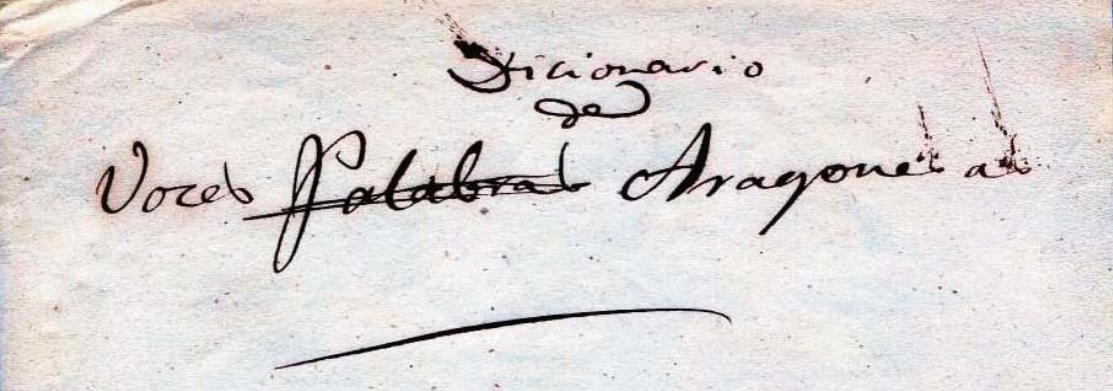 Dicionario
de
Voces Palabras Aragonesas